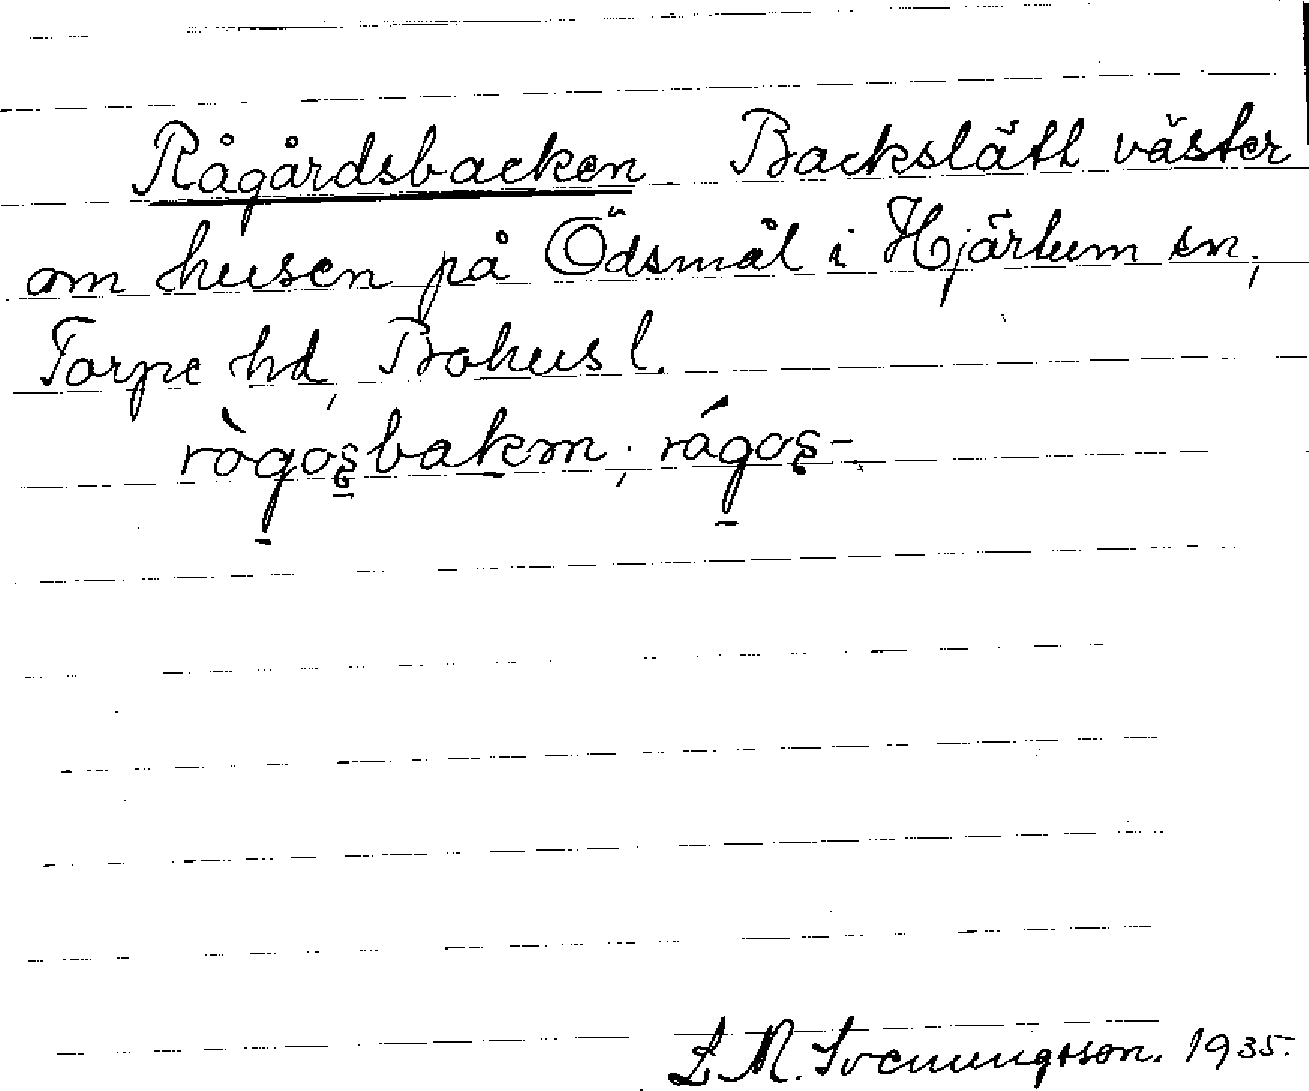 Rågårdsbacken Backslätt väster
om husen på Ödsmål i Hjärtum sn,
Torpe hd, Bohusl.
rògosbakm; rágos-.
L. M. Svenungsson. 1935.